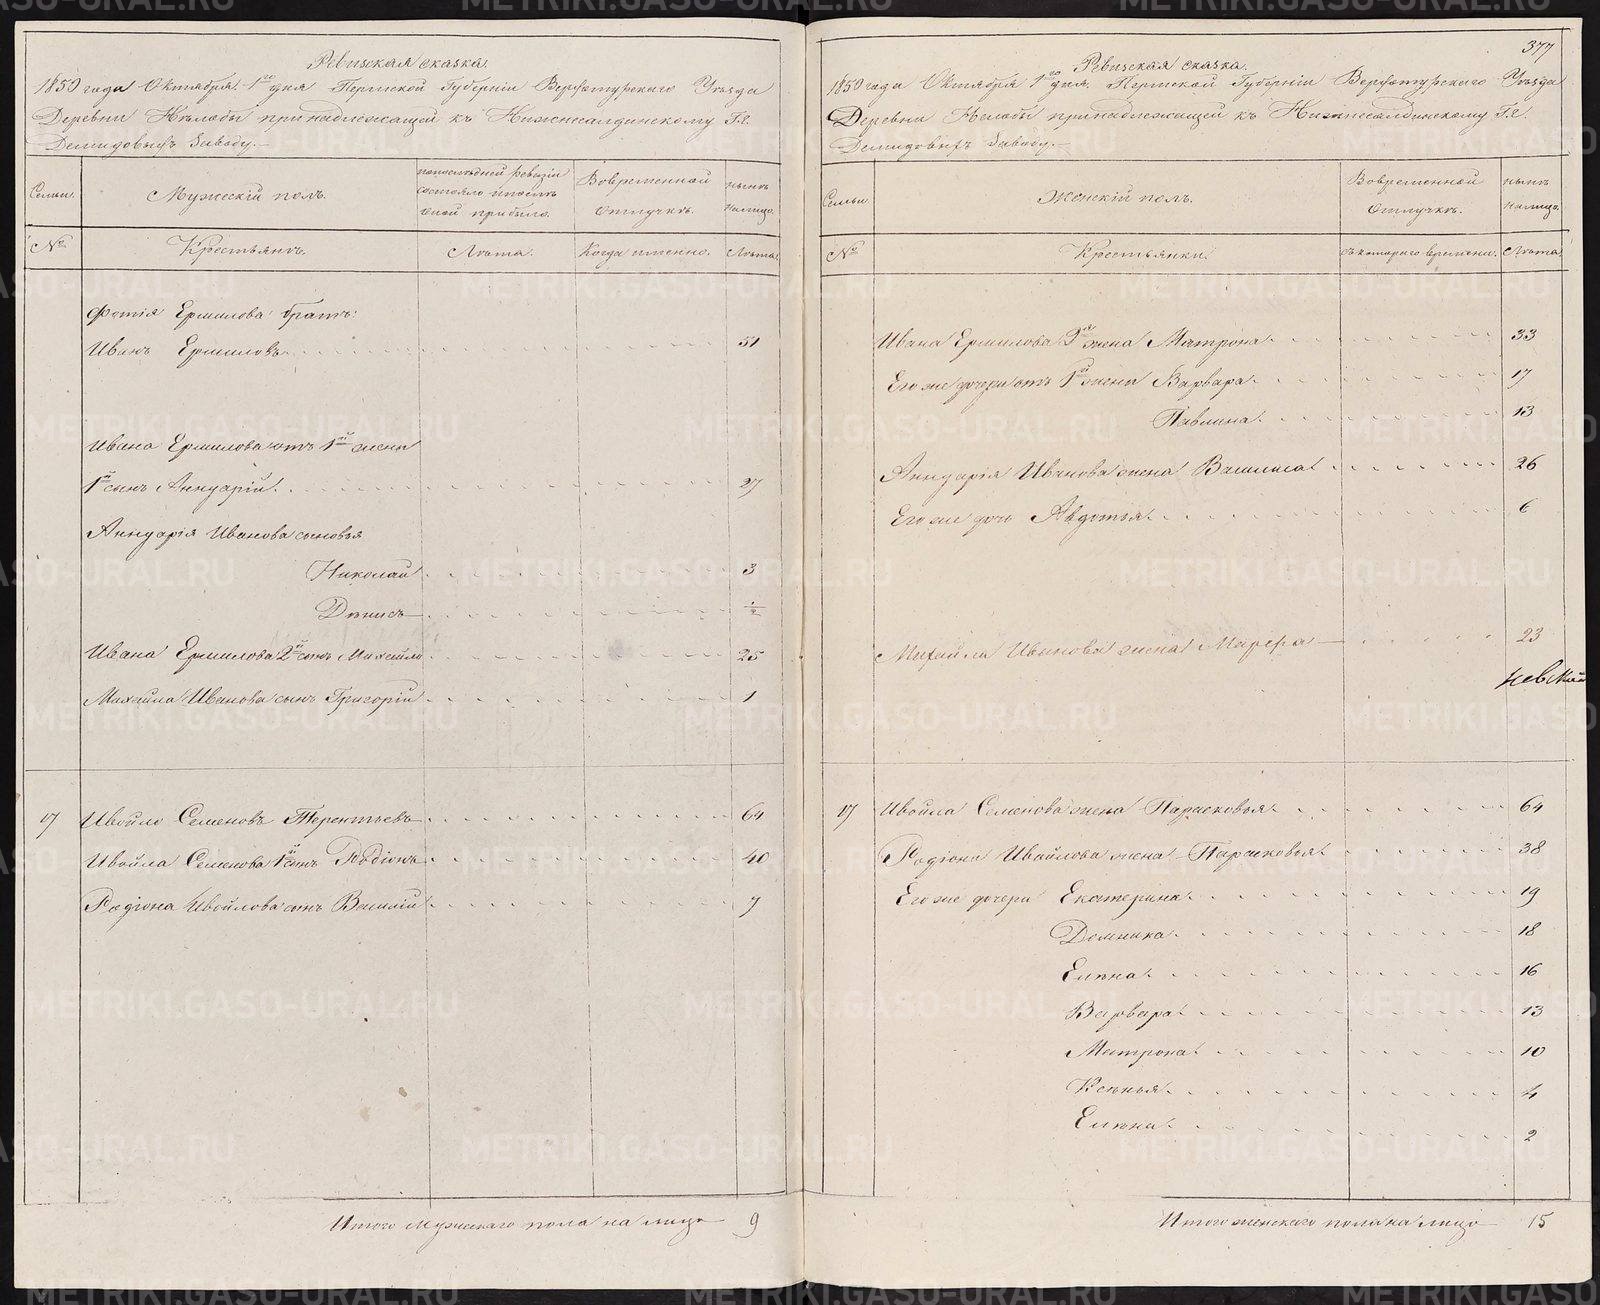 Ревизская сказка.
1850 года Октября 1го дня Пермской Губерніи Верхотурскаго Уѣзда
Деревни Нѣлобы принадлежащей къ Нижнесалдинскому Г.г.
Демидовыхъ Заводу.
Семьи.
Мужескій полъ.
по последней ревизіи состояло и после оной прибыло.
Во временной отлучкѣ.
нынѣ на лицо.
№
Крестьянъ.
Лѣта.
Когда именно.
Лѣта.
Фотія Ермилова братъ:
Иванъ Ермиловъ 51
Ивана Ермилова отъ 1й жены
1й сынъ Аннуарій 27
Аннуарія Иванова сыновья
Николай 3
Денисъ 1/2
Ивана Ермилова 2й сынъ Михайло 25
Михайла Иванова сынъ Григорій 1
17 Ивойло Семеновъ Терентьевъ 64
Ивойла Семенова 1й сынъ Родіонъ 40
Родіона Ивойлова сынъ Василій 7
Итого мужескаго пола на лицо 9
377
Ревизская сказка.
1850 года Октября 1го дня. Пермской Губерніи Верхотурскаго Уѣзда
Деревни Нелобы принадлежащей къ Нижнесалдинскому Г.г.
Демидовыхъ Заводу.
Семьи
Женскій полъ.
Во временной отлучкѣ.
нынѣ на лицо.
№
Крестьянки.
съ котораго времени.
Лѣта.
Ивана Ермилова 2я жена Матрона 33
Его же дочери отъ 1й жены Варвара 17
Павлина 13
Аннуарія Иванова жена Василиса 26
Его же дочь Авдотья 6
Михайла Иванова жена Марфа 23
Невскій
17 Ивойла Семенова жена Парасковья 64
Родіона Ивойлова жена Парасковья 38
Его же дочери Екатерина 19
Домника 18
Елена 16
Варвара 13
Матрона 10
Ксенья 4
Елена 2
Итого женскаго пола на лицо 15
METRIKI.GASO-URAL.RU